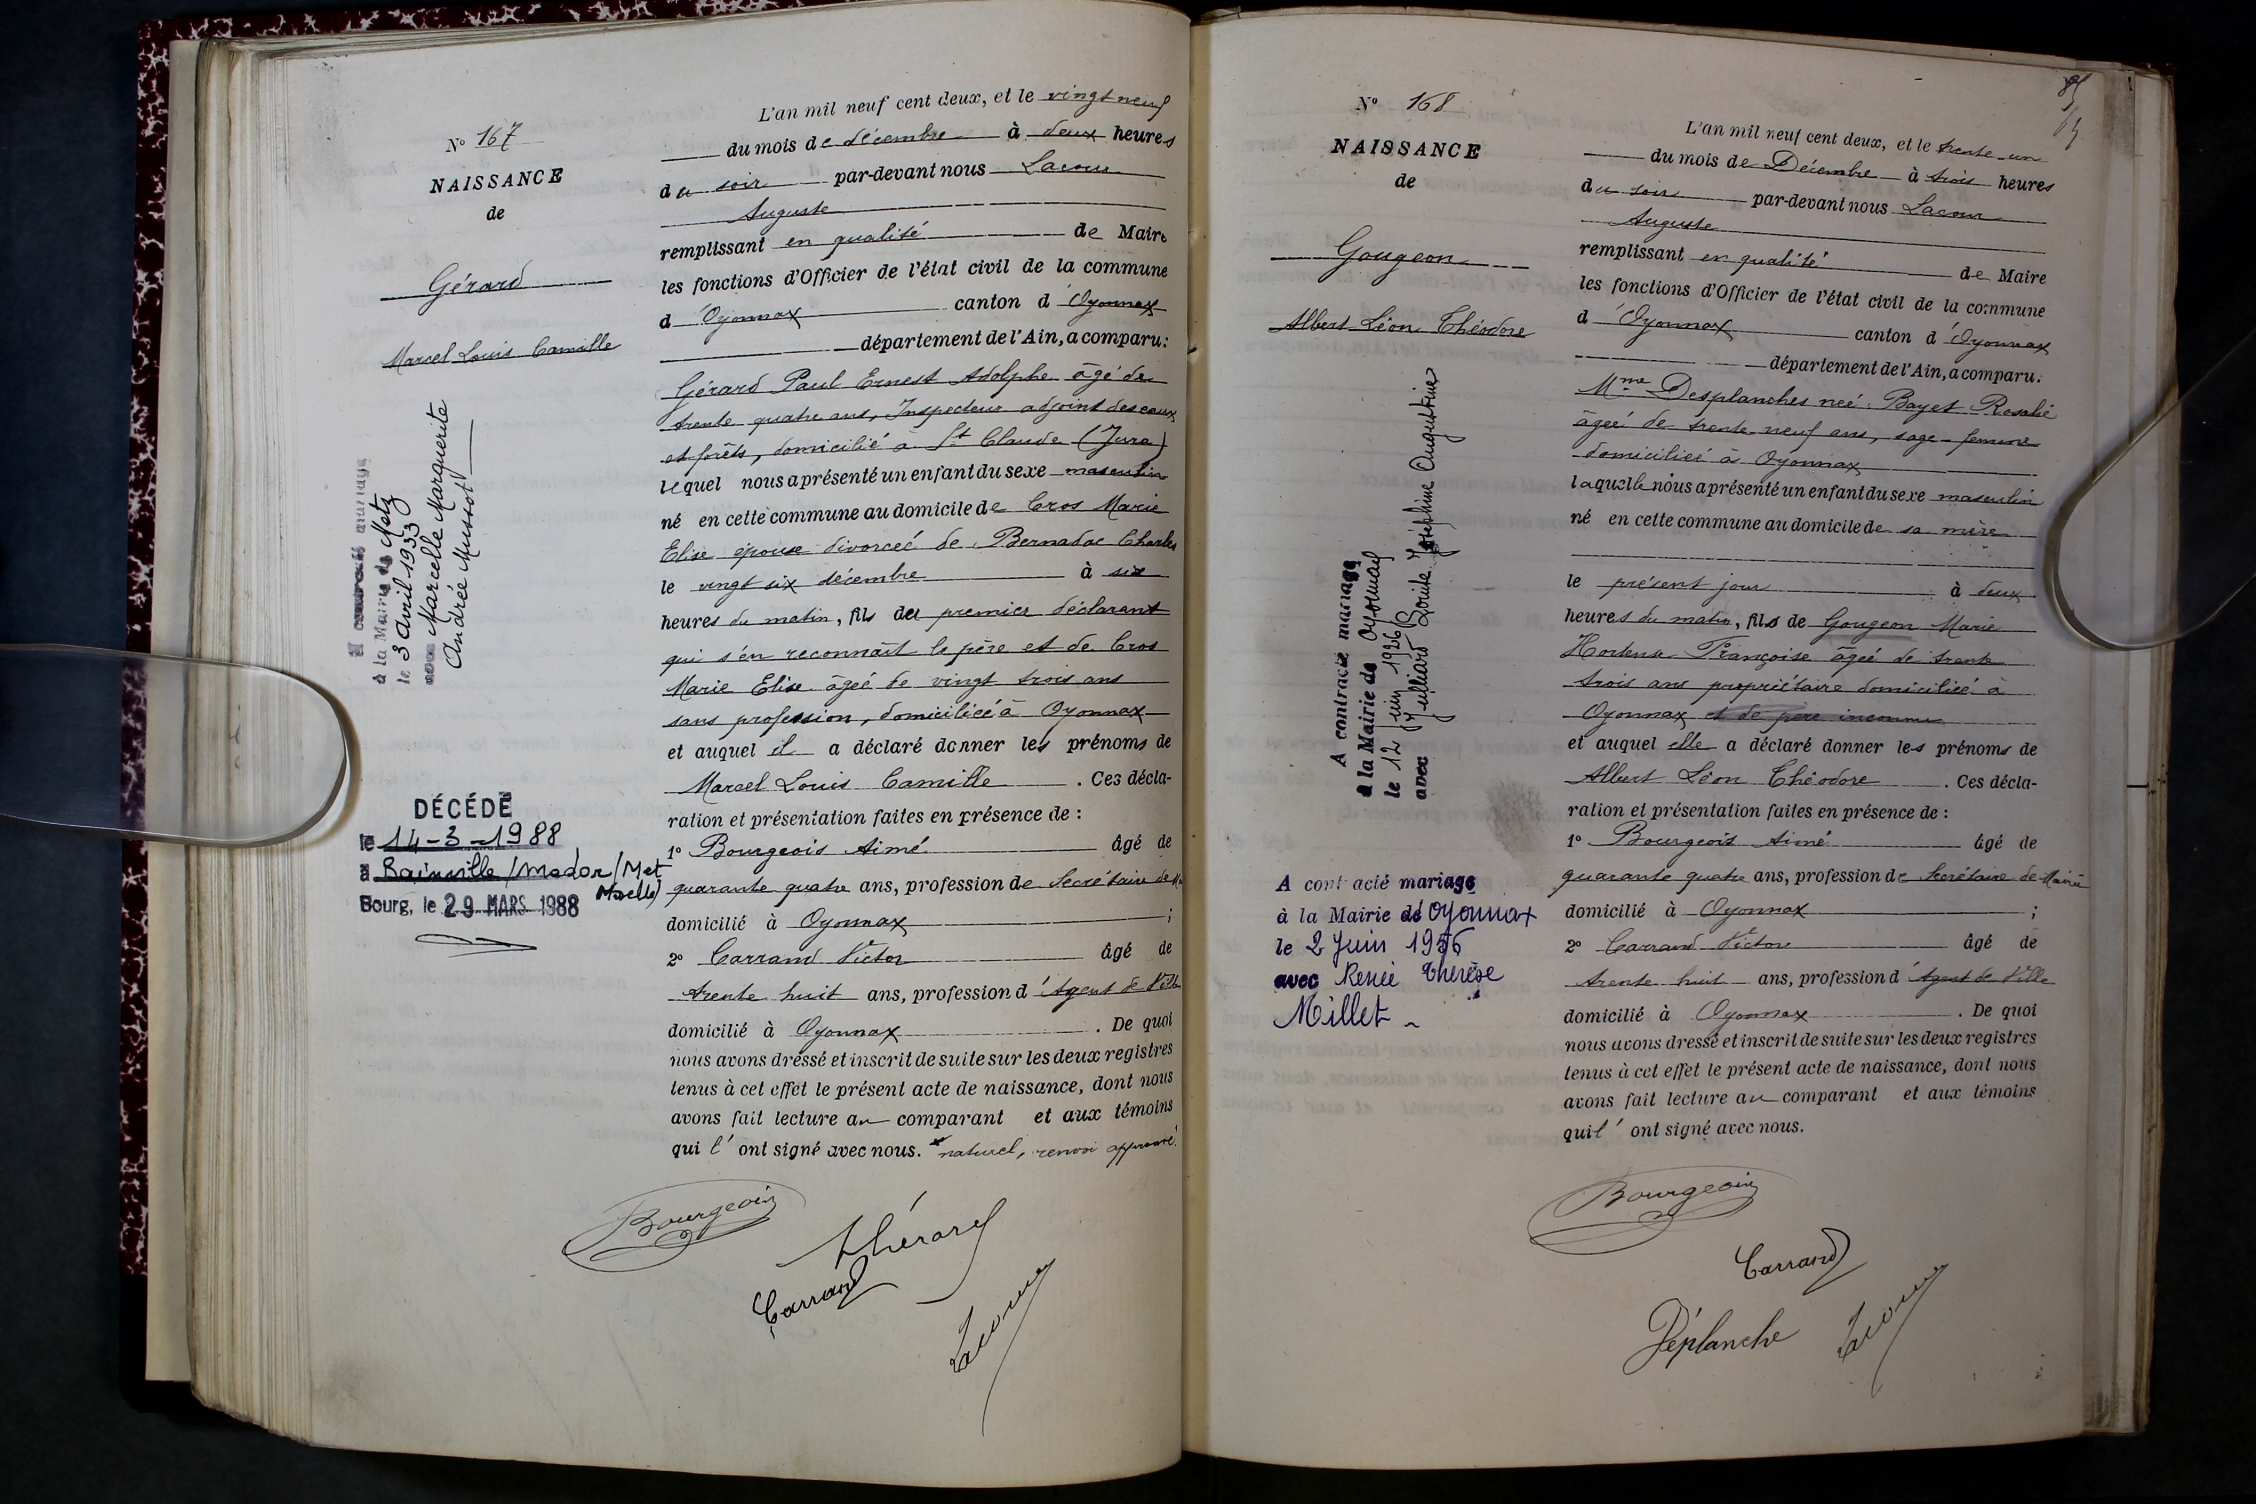 N° 167
NAISSANCE
de
Gérard
Marcel Louis Camille
A contracté mariage
à la Mairie de Metz
le 3 Avril 1933
avec Marcelle Marguerite
Andrée Mussot
DÉCÉDÉ
le 14-3-1988
à Bainville/Madon/Met
Moselle)
Bourg, le 29 MARS 1988
L'an mil neuf cent deux, et le vingt neuf
du mois de décembre à deux heures
du soir par-devant nous Lacour
Auguste
remplissant en qualité de Maire
les fonctions d'Officier de l'état civil de la commune
d'Oyonnax canton d'Oyonnax
département de l'Ain, a comparu:
Gérard Paul Ernest Adolphe âgé de
trente quatre ans, Inspecteur adjoint des eaux
et forêts, domicilié à St Claude (Jura)
lequel nous a présenté un enfant du sexe masculin
né en cette commune au domicile de Cros Marie
Elise épouse divorceé de Bernadac Charles
le vingt six décembre à six
heures du matin, fils du premier déclarant
qui s'en reconnaît le père et de Cros
Marie Elise âgeé de vingt trois ans
sans profession, domiciliéé à Oyonnax
et auquel il a déclaré donner les prénoms de
Marcel Louis Camille. Ces décla-
ration et présentation faites en présence de :
1° Bourgeois Aimé âgé de
quarante quatre ans, profession de Secrétaire de M
domicilié à Oyonnax ;
2° Carrand Victor âgé de
trente huit ans, profession d'Agent de Ville
domicilié à Oyonnax. De quoi
nous avons dressé et inscrit de suite sur les deux registres
tenus à cet effet le présent acte de naissance, dont nous
avons fait lecture au comparant et aux témoins
qui l'ont signé avec nous. naturel, renvoi approuvé.
Bourgeois
Gérard
Carrand
Lacour
85
N° 168
NAISSANCE
de
Gougeon
Albert Léon Théodore
A contracté mariage
à la Mairie de Oyonnax
le 12 Juin 1926
avec Juilliard Louise Joséphine Augustine
A contracté mariage
à la Mairie de Oyonnax
le 2 Juin 1956
avec Renée Thérèse
Millet
L'an mil neuf cent deux, et le trente-un
du mois de Décembre à trois heures
du soir par-devant nous Lacour
Auguste
remplissant en qualité de Maire
les fonctions d'Officier de l'état civil de la commune
d'Oyonnax canton d'Oyonnax
département de l'Ain, a comparu:
Mme Desplanches neé Bayet Rosalie
âgeé de trente-neuf ans, sage-femme
domiciliéé à Oyonnax
laquelle nous a présenté un enfant du sexe masculin
né en cette commune au domicile de sa mère
le présent jour à deux
heures du matin, fils de Gougeon Marie
Hortense Françoise âgeé de trente
trois ans propriétaire domiciliéé à
Oyonnax et de père inconnu
et auquel elle a déclaré donner les prénoms de
Albert Léon Théodore. Ces décla-
ration et présentation faites en présence de :
1° Bourgeois Aimé âgé de
quarante quatre ans, profession de Secrétaire de Mairie
domicilié à Oyonnax ;
2° Carrand Victor âgé de
trente huit ans, profession d'Agent de Ville
domicilié à Oyonnax. De quoi
nous avons dressé et inscrit de suite sur les deux registres
tenus à cet effet le présent acte de naissance, dont nous
avons fait lecture au comparant et aux témoins
qui l'ont signé avec nous.
Bourgeois
Carrand
Déplanche
Lacour